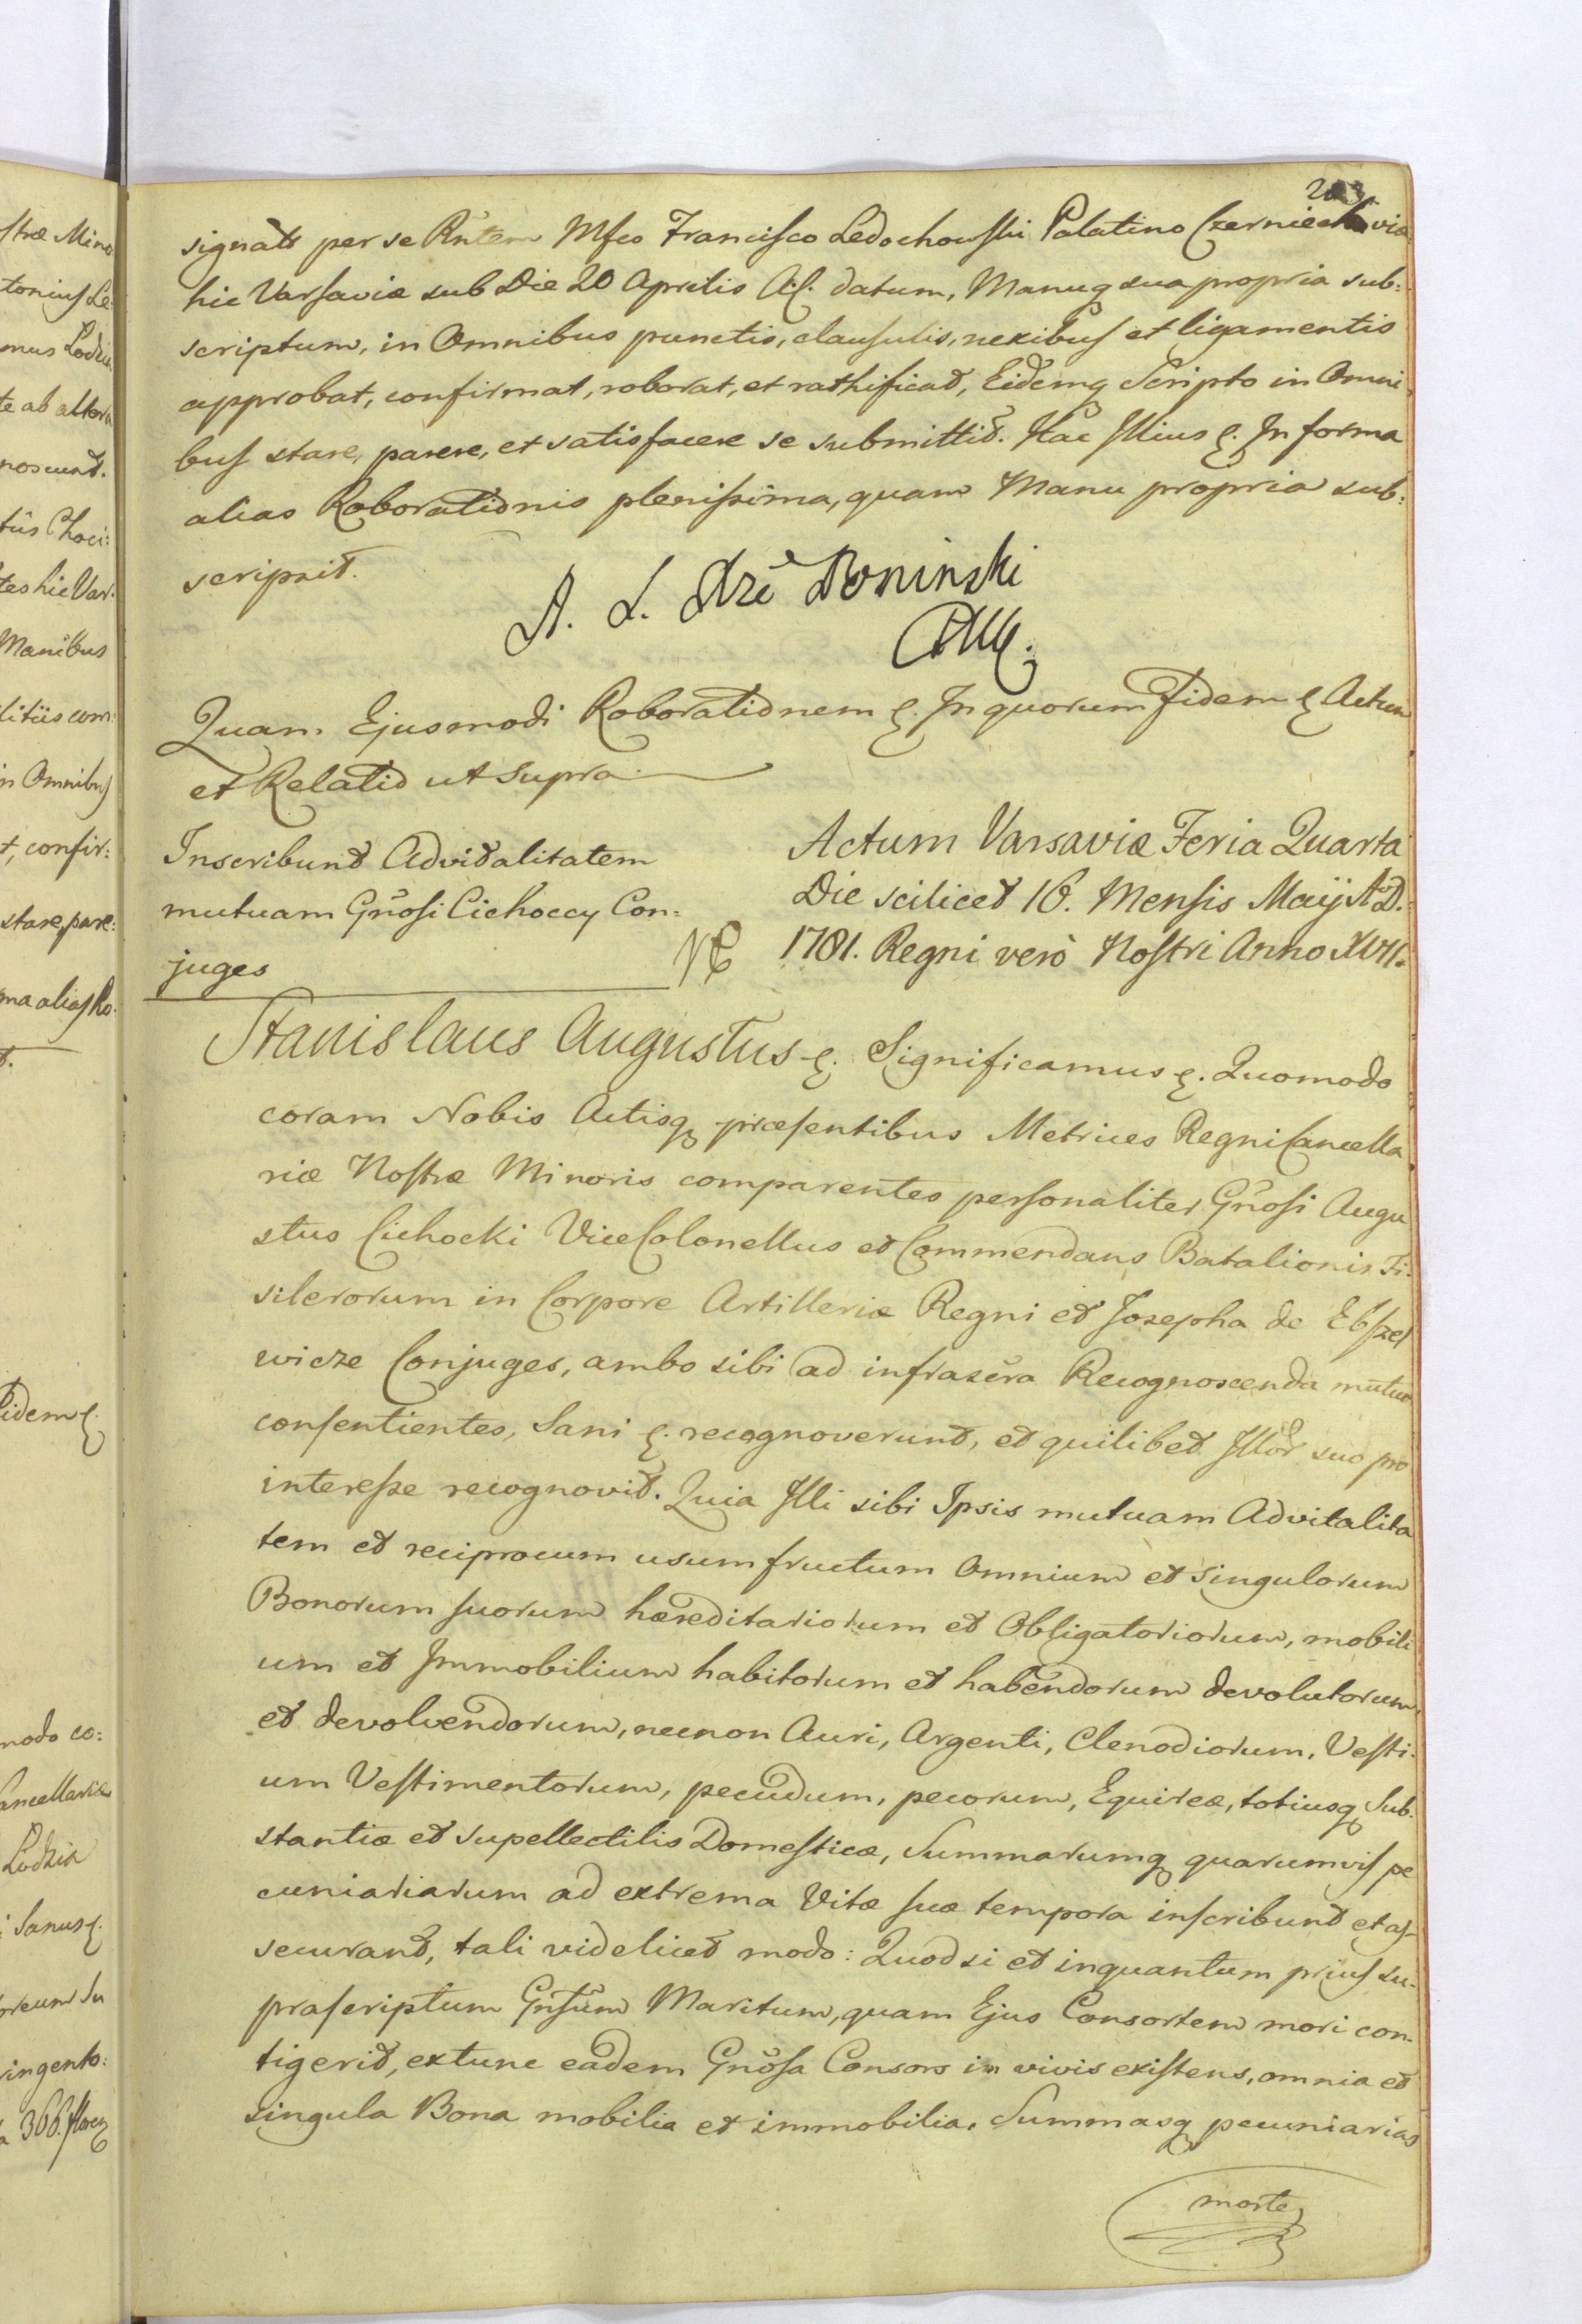 203
signāts per se Rñtem Mfco Francisco Ledochowski Palatino Czerniechoviæ
hic Varsaviæ sub Die 20 Aprilis A.C. datum, Manuq sua propria sub:
scriptum, in Omnibus punctis, clausulis, nexibus et ligamentis
approbat, confirmat, roborat, et rathificat, Eidemq Scripto in Omni
bus stare, parere, et satisfacere se submittit. Hac Illius &. In forma
alias Roborationis plenissima, quam Manu propria sub:
scripsit.
A. L. Xże Poninski
Quam Ejusmodi Roborationem &. In quorum fidem & Actum
et Relatio ut supra.
Inscribunt Advitalitatem
mutuam Gñosi Cichoccy Con:
juges
Actum Varsaviæ Feria Quarta
Die scilicet 16. Mensis Maÿ A.D.
1781. Regni verò Nostri Anno XVII.
Stanislaus Augustus &. Significamus &. Quomodo
coram Nobis Actisq præsentibus Metrices Regni Cancella
riæ Nostræ Minoris comparentes personaliter Gñosi Augu
stus Cichocki ViceColonellus et Commendans Batalionis Fi:
silerorum in Corpore Artilleriæ Regni et Josepha de
Conjuges, ambo sibi ad infrascra Recognoscenda mutuo
consentientes, Sani &. recognoverunt, et quilibet Illor suo pro
interesse recognovit. Quia Illi sibi Ipsis mutuam Advitalita
tem et reciprocum usumfructum Omnium et singulorum
Bonorum suorum hæreditariorum et Obligatoriorum, mobili
um et Immobilium habitorum et habendorum devolutorum,
et devolvendorum, necnon Auri, Argenti, Clenodiorum, Vesti:
um Vestimentorum, pecudum, pecorum, Equireæ, totiusq Sub:
stantiæ et supellectilis Domesticæ, Summarumq quarumvis pe
cuniariarum ad extrema Vitæ suæ tempora inscribunt et as-
securant, tali videlicet modo: Quod si et inquantum prius su-
prascriptum Gñsum Maritum, quam Ejus Consortem mori con-
tigerit, extunc eadem Gñosa Consors in vivis existens, omnia et
singula Bona mobilia et immobilia, Summasq pecuniarias
morte